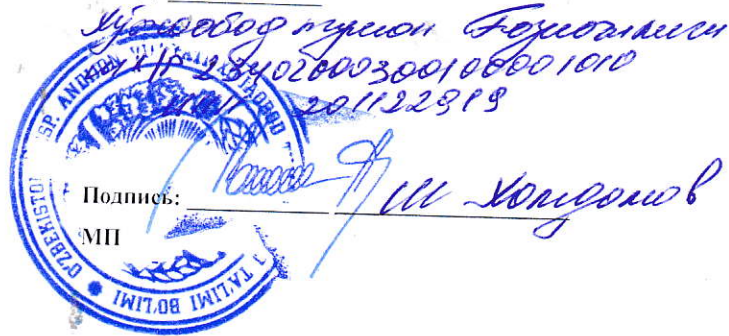 Хўжаобод туман Ғазначилиги
х/р 23402000300100001010
201122919
Подпись: Ш Холдоров
МП
O'ZBEKISTON RESP. ANDIJON VILOYATI XO'JAOBOD T TA'LIMI BO'LIMI